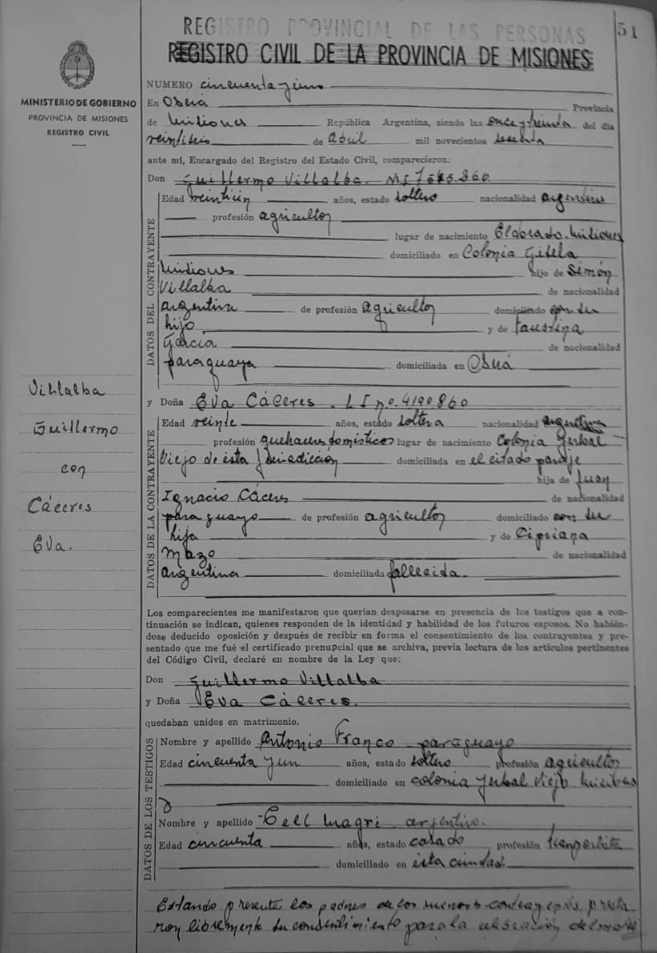 REGISTRO PROVINCIAL DE LAS PERSONAS
51
REGISTRO CIVIL DE LA PROVINCIA DE MISIONES
MINISTERIO DE GOBIERNO
PROVINCIA DE MISIONES
REGISTRO CIVIL
NUMERO cincuenta y uno
En Oberá Provincia
de Misiones República Argentina, siendo las once y treinta del día
veintiséis de Abril mil novecientos sesenta
ante mí, Encargado del Registro del Estado Civil, comparecieron:
Don Guillermo Villalba. MI 7.
DATOS DEL CONTRAYENTE
Edad años, estado soltero nacionalidad argentino
profesión agricultor
lugar de nacimiento Eldorado. Misiones
domiciliado en Colonia Gisela
Misiones hijo de Simón
Villalba de nacionalidad
argentina de profesión agricultor domiciliado con su
hijo y de Faustina
García de nacionalidad
paraguaya domiciliada en Oberá
y Doña Eva Cáceres. LI no. 4190.860
DATOS DE LA CONTRAYENTE
Edad veinte años, estado soltera nacionalidad argentina
profesión quehaceres domésticos lugar de nacimiento Colonia Yerbal
Viejo de esta Jurisdicción domiciliada en el citado paraje
hija de Juan
Ignacio Cáceres de nacionalidad
paraguayo de profesión agricultor domiciliado con su
hija y de Cipriana
Mazo de nacionalidad
argentina domiciliada fallecida.
Villalba
Guillermo
con
Cáceres
Eva.
Los comparecientes me manifestaron que querían desposarse en presencia de los testigos que a con-
tinuación se indican, quienes responden de la identidad y habilidad de los futuros esposos. No habién-
dose deducido oposición y después de recibir en forma el consentimiento de los contrayentes y pre-
sentado que me fué el certificado prenupcial que se archiva, previa lectura de los artículos pertinentes
del Código Civil, declaré en nombre de la Ley que:
Don Guillermo Villalba
y Doña Eva Cáceres.
quedaban unidos en matrimonio.
DATOS DE LOS TESTIGOS
Nombre y apellido Antonio Franco paraguayo
Edad cincuenta y un años, estado soltero profesión agricultor
domiciliado en colonia Yerbal Viejo Misiones
Nombre y apellido argentino.
Edad cincuenta años, estado casado profesión transportista
domiciliado en esta ciudad
Estando presente los padres de los menores contrayentes presta
ron libremente su consentimiento para la celebración del mismo